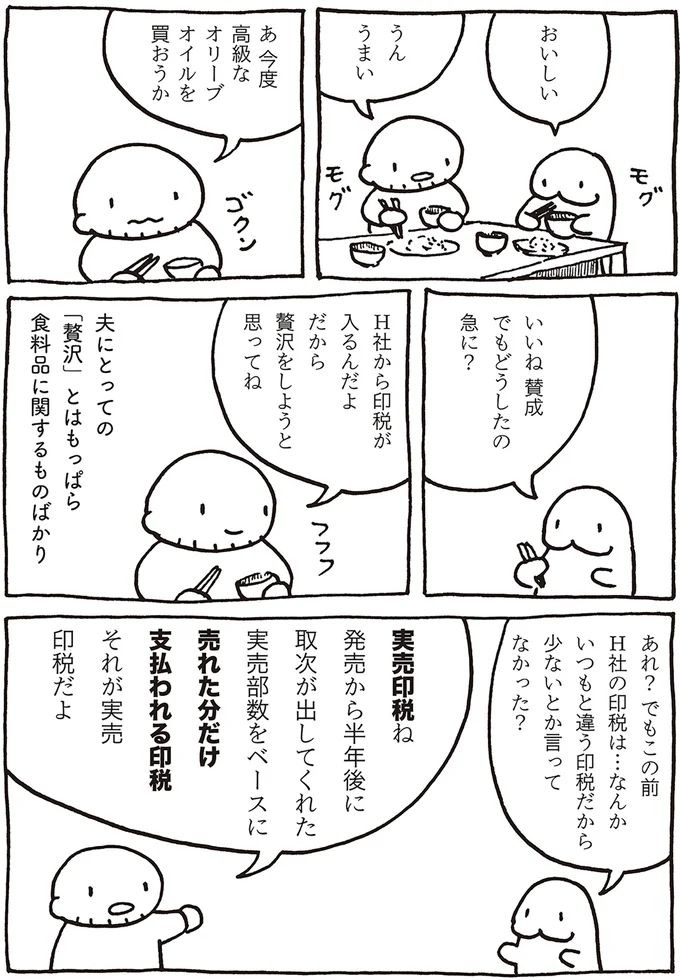 おいしい
うん
うまい
モグ
モグ
あ 今度
高級な
オリーブ
オイルを
買おうか
ゴクン
いいね 賛成
でもどうしたの
急に？
H社から印税が
入るんだよ
だから
贅沢をしようと
思ってね
フフフ
夫にとっての
「贅沢」とはもっぱら
食料品に関するものばかり
あれ？ でもこの前
H社の印税は…なんか
いつもと違う印税だから
少ないとか言って
なかった？
実売印税ね
発売から半年後に
取次が出してくれた
実売部数をベースに
売れた分だけ
支払われる印税
それが実売
印税だよ